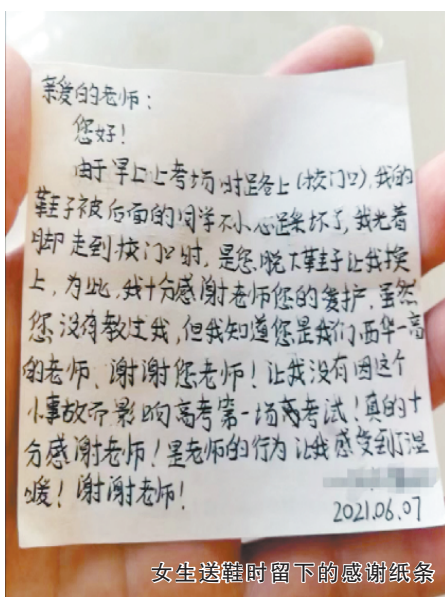 亲爱的老师：
您好！
由于早上上考场时路上(校门口),我的
鞋子被后面的同学不小心踩坏了,我光着
脚走到校门口时,是您脱下鞋子让我换
上,为此,我十分感谢老师您的爱护,虽然
您没有教过我,但我知道您是我们西华一高
的老师、谢谢您老师！让我没有因这个
小事故而影响高考第一场考试！真的十
分感谢老师！是老师的行为让我感受到了温
暖！谢谢老师！
2021.06.07
女生送鞋时留下的感谢纸条